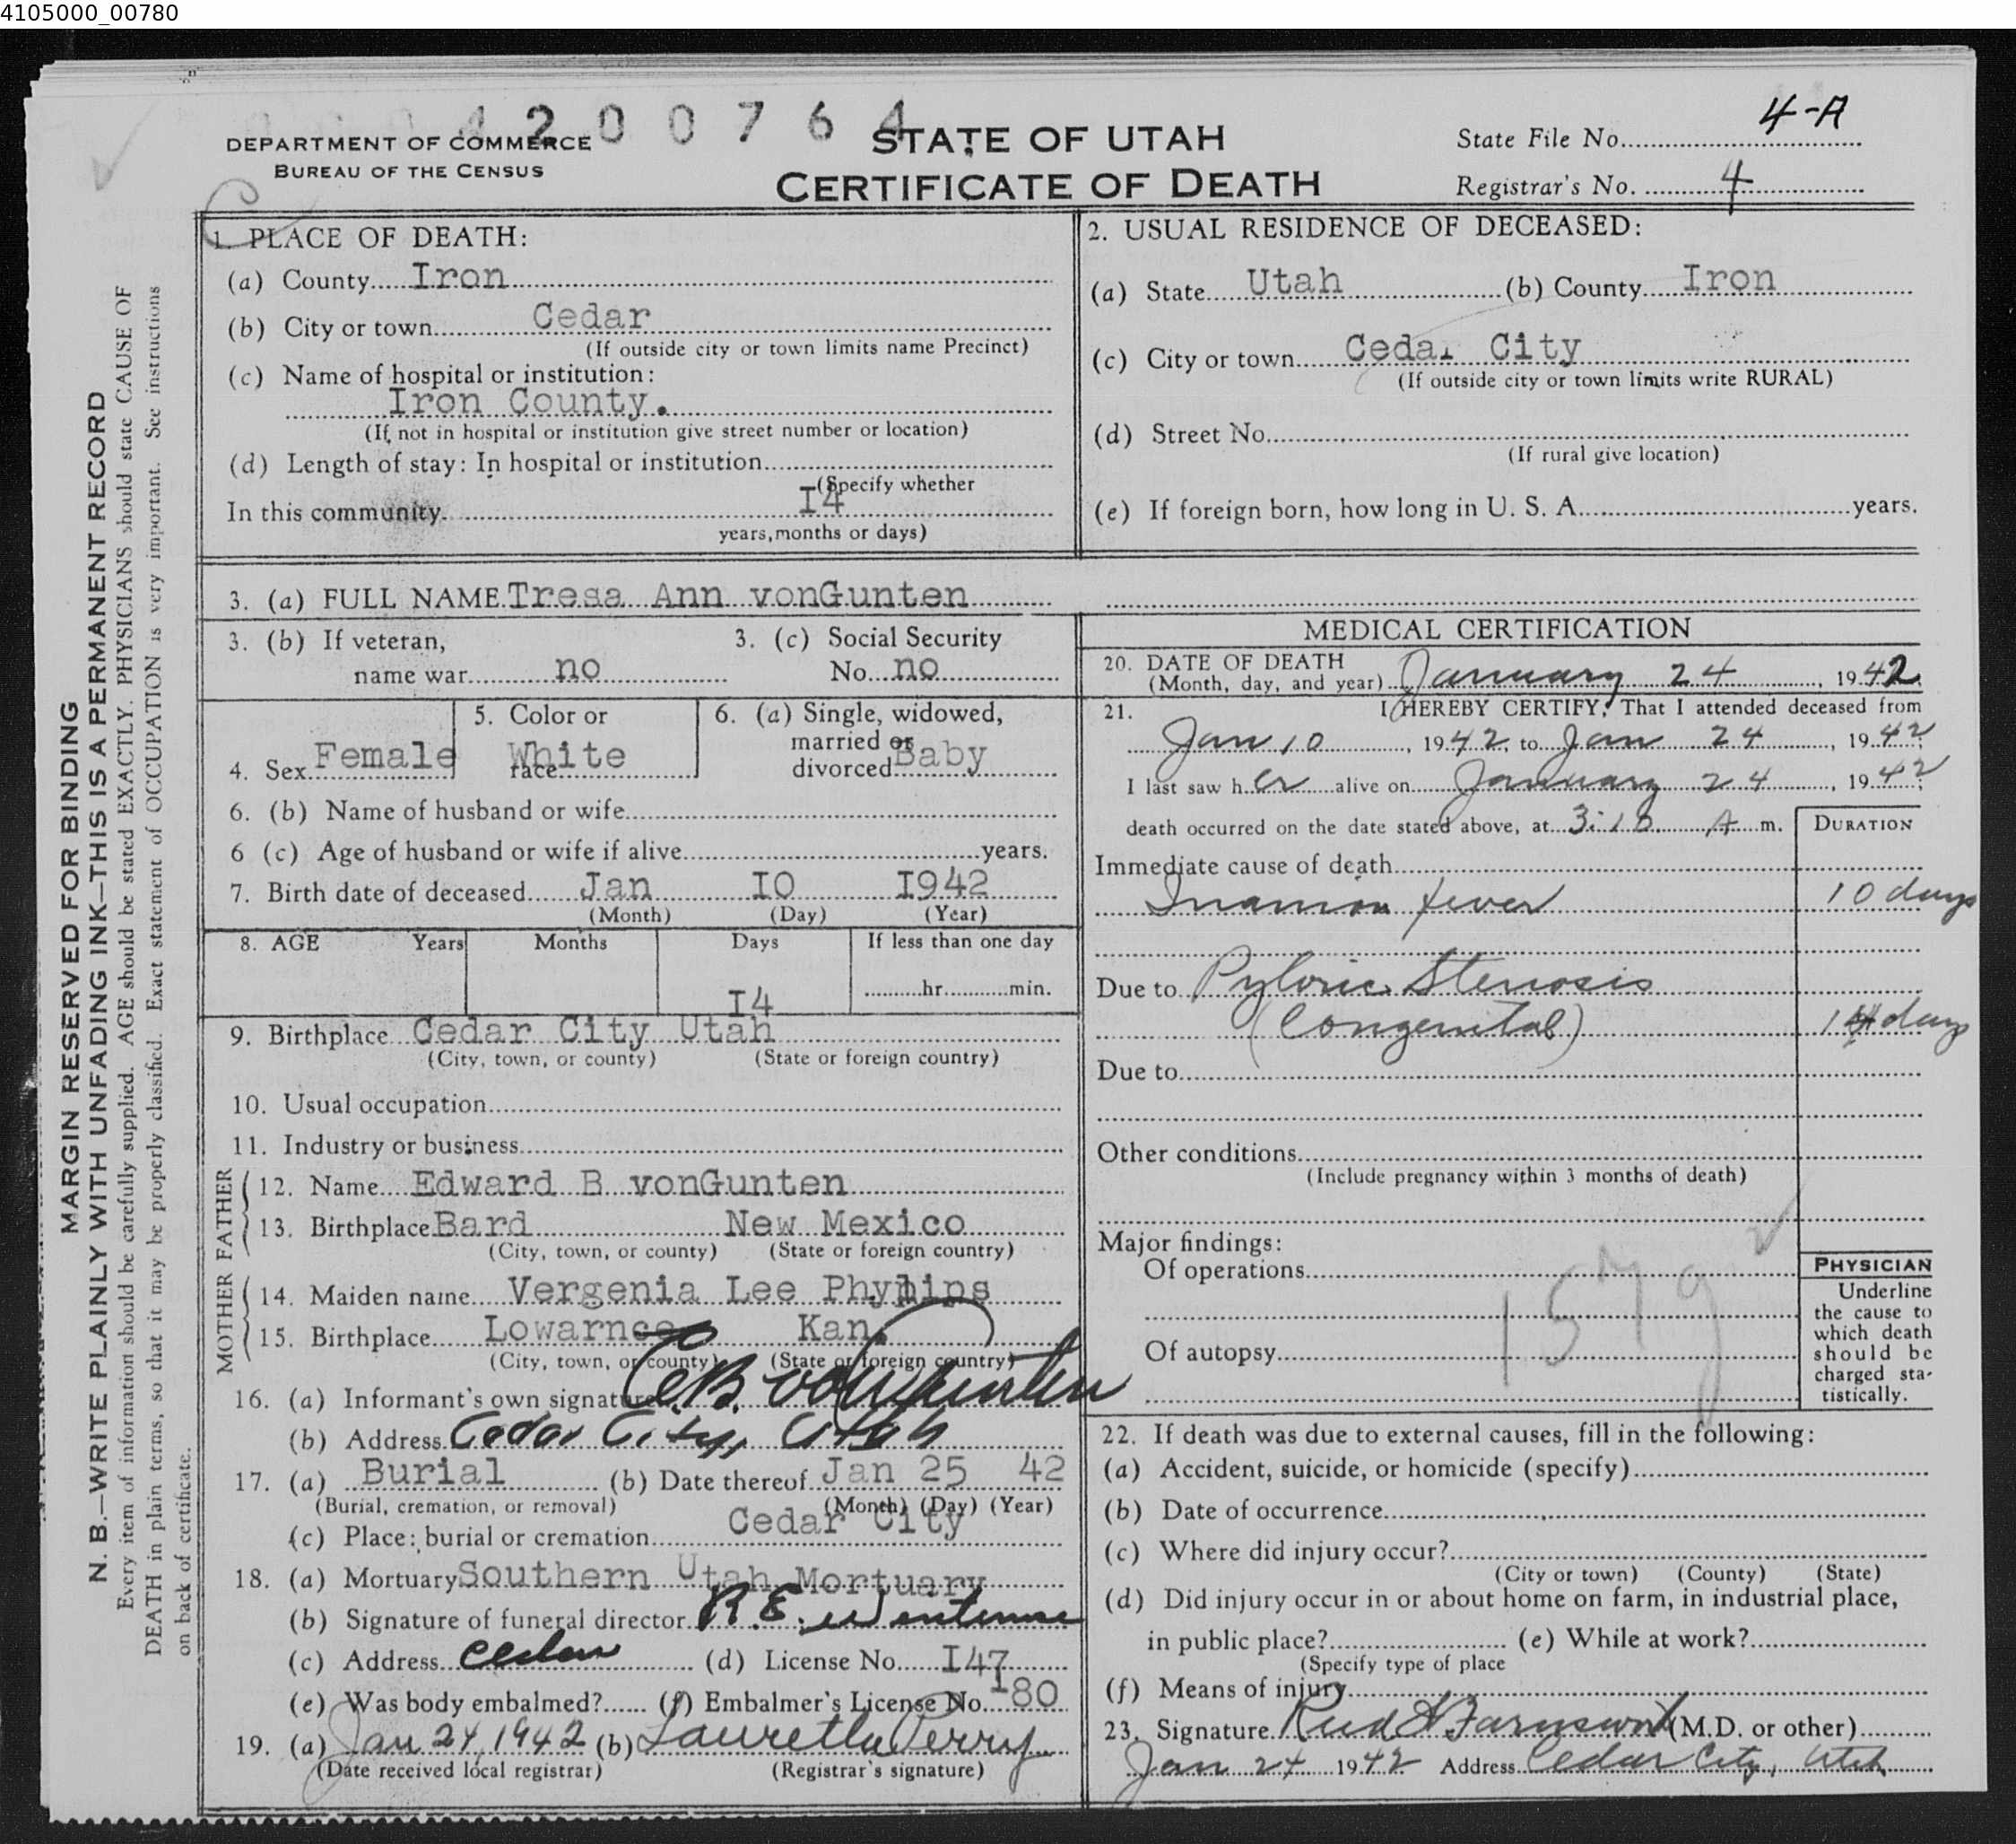 4105000_00780
4200764
DEPARTMENT OF COMMERCE
BUREAU OF THE CENSUS
STATE OF UTAH
CERTIFICATE OF DEATH
State File No. 4-A
Registrar's No. 4
MARGIN RESERVED FOR BINDING
N. B.—WRITE PLAINLY WITH UNFADING INK—THIS IS A PERMANENT RECORD
Every item of information should be carefully supplied. AGE should be stated EXACTLY. PHYSICIANS should state CAUSE OF
DEATH in plain terms, so that it may be properly classified. Exact statement of OCCUPATION is very important. See instructions
on back of certificate.
1. PLACE OF DEATH:
(a) County Iron
(b) City or town Cedar
(If outside city or town limits name Precinct)
(c) Name of hospital or institution:
Iron County.
(If not in hospital or institution give street number or location)
(d) Length of stay: In hospital or institution
(Specify whether
In this community I4
years, months or days)
2. USUAL RESIDENCE OF DECEASED:
(a) State Utah (b) County Iron
(c) City or town Cedar City
(If outside city or town limits write RURAL)
(d) Street No.
(If rural give location)
(e) If foreign born, how long in U. S. A. years.
3. (a) FULL NAME Tresa Ann vonGunten
3. (b) If veteran,
name war no
3. (c) Social Security
No. no
4. Sex Female
5. Color or
race White
6. (a) Single, widowed,
married or
divorced Baby
6. (b) Name of husband or wife
6 (c) Age of husband or wife if alive years.
7. Birth date of deceased Jan IO I942
(Month) (Day) (Year)
8. AGE Years Months Days If less than one day
I4 hr. min.
9. Birthplace Cedar City Utah
(City, town, or county) (State or foreign country)
10. Usual occupation
11. Industry or business
FATHER
12. Name Edward B vonGunten
13. Birthplace Bard New Mexico
(City, town, or county) (State or foreign country)
MOTHER
14. Maiden name Vergenia Lee Phylips
15. Birthplace Lowarnce Kan.
(City, town, or county) (State or foreign country)
16. (a) Informant's own signature E.B. vonGunten
(b) Address Cedar City, Utah
17. (a) Burial (b) Date thereof Jan 25 42
(Burial, cremation, or removal) (Month) (Day) (Year)
(c) Place: burial or cremation Cedar City
18. (a) Mortuary Southern Utah Mortuary
(b) Signature of funeral director R.E.
(c) Address Cedar (d) License No. I47
(e) Was body embalmed? (f) Embalmer's License No. I80
19. (a) Jan 24, 1942 (b) Lauretta Perry
(Date received local registrar) (Registrar's signature)
MEDICAL CERTIFICATION
20. DATE OF DEATH
(Month, day, and year) January 24, 1942
21. I HEREBY CERTIFY, That I attended deceased from
Jan 10, 1942, to Jan 24, 1942
I last saw her alive on January 24, 1942
death occurred on the date stated above, at 3:10 A m.
DURATION
Immediate cause of death
Inanition fever 10 days
Due to Pyloric Stenosis
(Congenital) 14 days
Due to
Other conditions
(Include pregnancy within 3 months of death)
Major findings:
Of operations
Of autopsy
157g
PHYSICIAN
Underline
the cause to
which death
should be
charged sta-
tistically.
22. If death was due to external causes, fill in the following:
(a) Accident, suicide, or homicide (specify)
(b) Date of occurrence
(c) Where did injury occur?
(City or town) (County) (State)
(d) Did injury occur in or about home on farm, in industrial place,
in public place? (e) While at work?
(Specify type of place
(f) Means of injury
23. Signature Reid H Farnsworth (M.D. or other)
Jan 24 1942 Address Cedar City, Utah